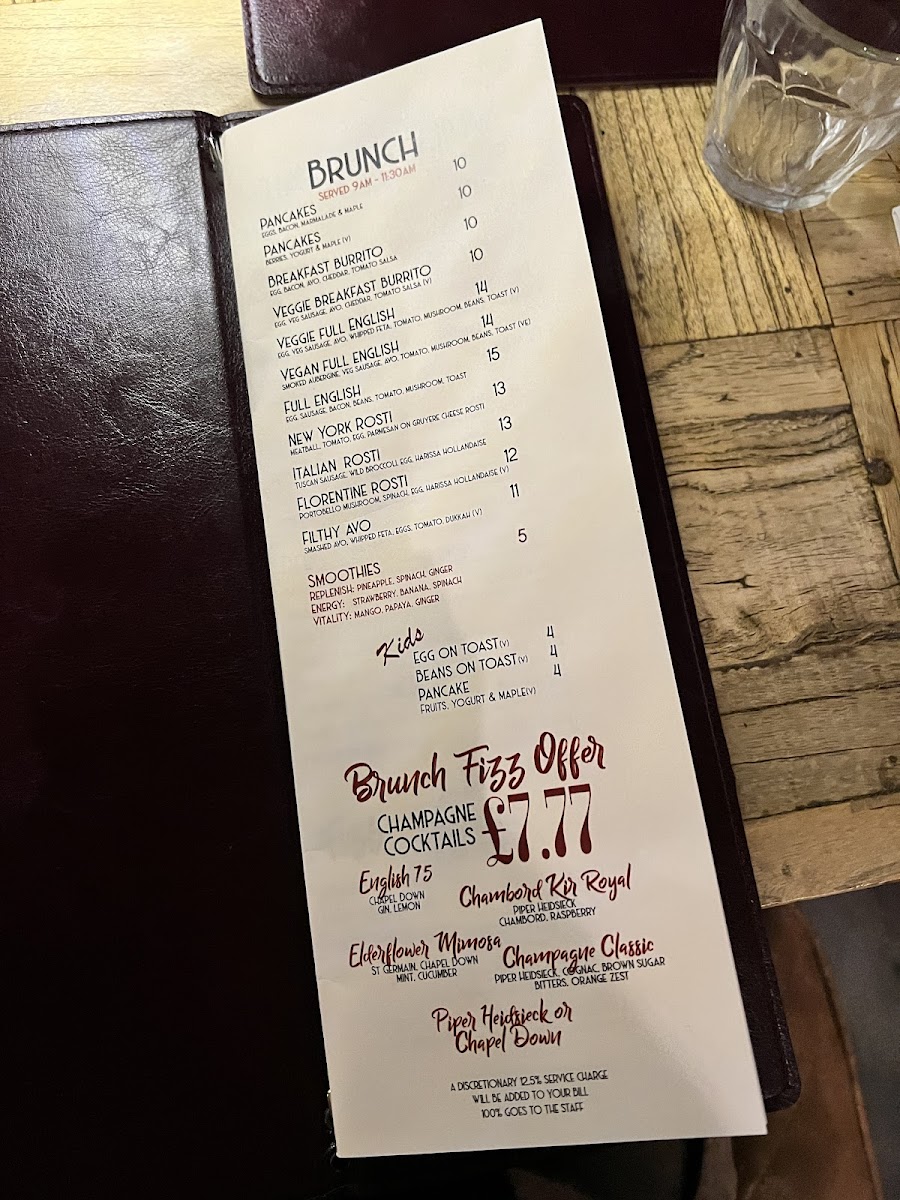 BRUNCH
SERVED 9AM - 11:30AM
PANCAKES 10
EGGS, BACON, MARMALADE & MAPLE
PANCAKES 10
BERRIES, YOGURT & MAPLE (V)
BREAKFAST BURRITO 10
EGG, BACON, AVO, CHEDDAR, TOMATO SALSA
VEGGIE BREAKFAST BURRITO 10
EGG, VEG SAUSAGE, AVO, CHEDDAR, TOMATO SALSA (V)
VEGGIE FULL ENGLISH 14
EGG, VEG SAUSAGE, AVO, WHIPPED FETA, TOMATO, MUSHROOM, BEANS, TOAST (V)
VEGAN FULL ENGLISH 14
SMOKED AUBERGINE, VEG SAUSAGE, AVO, TOMATO, MUSHROOM, BEANS, TOAST (VE)
FULL ENGLISH 15
EGG, SAUSAGE, BACON, BEANS, TOMATO, MUSHROOM, TOAST
NEW YORK ROSTI 13
MEATBALL, TOMATO, EGG, PARMESAN ON GRUYERE CHEESE ROSTI
ITALIAN ROSTI 13
TUSCAN SAUSAGE, WILD BROCCOLI, EGG, HARISSA HOLLANDAISE
FLORENTINE ROSTI 12
PORTOBELLO MUSHROOM, SPINACH, EGG, HARISSA HOLLANDAISE (V)
FILTHY AVO 11
SMASHED AVO, WHIPPED FETA, EGGS, TOMATO, DUKKAH (V)
SMOOTHIES 5
REPLENISH: PINEAPPLE, SPINACH, GINGER
ENERGY: STRAWBERRY, BANANA, SPINACH
VITALITY: MANGO, PAPAYA, GINGER
Kids
EGG ON TOAST(V) 4
BEANS ON TOAST(V) 4
PANCAKE 4
FRUITS, YOGURT & MAPLE(V)
Brunch Fizz Offer
CHAMPAGNE
COCKTAILS £7.77
English 75
CHAPEL DOWN
GIN, LEMON
Chambord Kir Royal
PIPER HEIDSIECK
CHAMBORD, RASPBERRY
Elderflower Mimosa
ST GERMAIN, CHAPEL DOWN
MINT, CUCUMBER
Champagne Classic
PIPER HEIDSIECK, COGNAC, BROWN SUGAR
BITTERS, ORANGE ZEST
Piper Heidsieck or
Chapel Down
A DISCRETIONARY 12.5% SERVICE CHARGE
WILL BE ADDED TO YOUR BILL
100% GOES TO THE STAFF